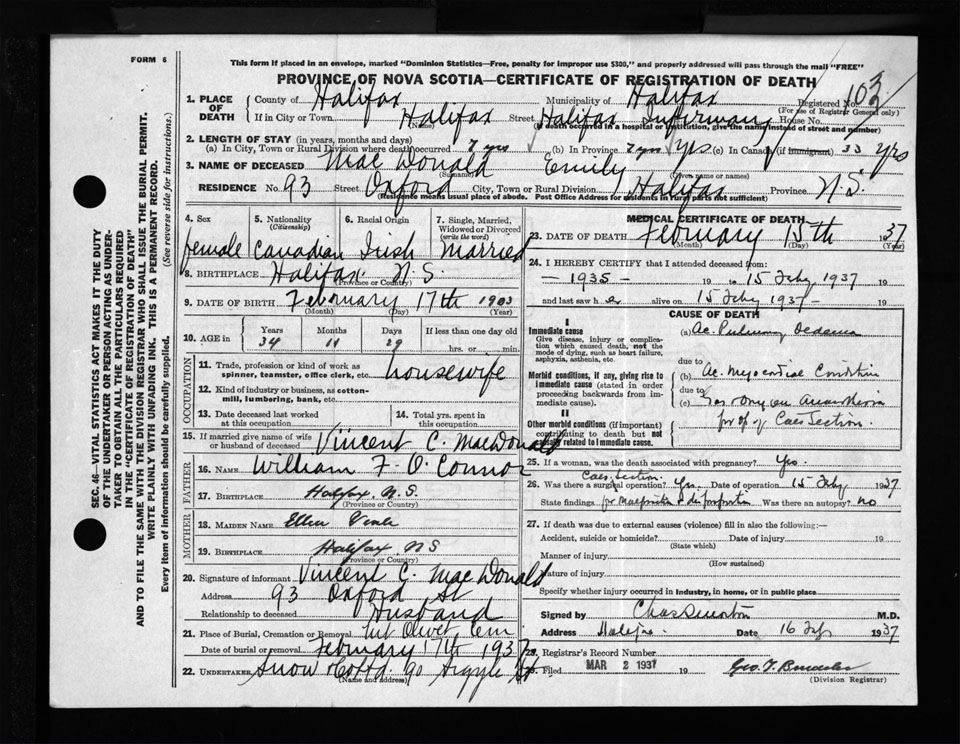 FORM 6
This form if placed in an envelope, marked "Dominion Statistics—Free, penalty for improper use $300," and properly addressed will pass through the mail "FREE"
PROVINCE OF NOVA SCOTIA—CERTIFICATE OF REGISTRATION OF DEATH
1. PLACE OF DEATH
County of Halifax Municipality of Halifax Registered No. 103
(For use of Registrar General only)
If in City or Town Halifax Street Halifax Infirmary House No.
(Name) (If death occurred in a hospital or institution, give the name instead of street and number)
2. LENGTH OF STAY (in years, months and days)
(a) In City, Town or Rural Division where death occurred 7 yrs (b) In Province 7 yrs yrs (c) In Canada (if immigrant) 33 yrs
3. NAME OF DECEASED MacDonald Emily
(Surname) (Given name or names)
RESIDENCE No. 93 Street Oxford City, Town or Rural Division Halifax Province N.S.
(Residence means usual place of abode. Post Office Address for residents in Rural parts not sufficient)
4. Sex 5. Nationality (Citizenship) 6. Racial Origin 7. Single, Married, Widowed or Divorced (write the word)
female Canadian Irish Married
8. BIRTHPLACE Halifax N.S.
(Province or Country)
9. DATE OF BIRTH February 17th 1903
(Month) (Day) (Year)
10. AGE in Years Months Days If less than one day old
34 11 29 hrs. or min.
OCCUPATION
11. Trade, profession or kind of work as spinner, teamster, office clerk, etc. housewife
12. Kind of industry or business, as cotton-mill, lumbering, bank, etc.
13. Date deceased last worked at this occupation
14. Total yrs. spent in this occupation
15. If married give name of wife or husband of deceased Vincent C. MacDonald
FATHER
16. NAME William F. O. Connor
17. BIRTHPLACE Halifax N.S.
(Province or Country)
MOTHER
18. MAIDEN NAME Ellen
19. BIRTHPLACE Halifax NS
(Province or Country)
20. Signature of informant Vincent C. MacDonald
Address 93 Oxford St
Relationship to deceased Husband
21. Place of Burial, Cremation or Removal Mt Olivet Cem
Date of burial or removal February 17th 1937
22. UNDERTAKER Snow & Co Ltd 90 Argyle St
(Name and address)
MEDICAL CERTIFICATE OF DEATH
23. DATE OF DEATH February 15th 1937
(Month) (Day) (Year)
24. I HEREBY CERTIFY that I attended deceased from:
— 1935 — 19 to 15 Feby 1937 19
and last saw her alive on 15 Feby 1937 — 19
CAUSE OF DEATH
I
Immediate cause
Give disease, injury or complication which caused death, not the mode of dying, such as heart failure, asphyxia, asthenia, etc.
(a) Ac. Pulmonary Oedema
due to
Morbid conditions, if any, giving rise to immediate cause (stated in order proceeding backwards from immediate cause).
(b) Ac. Myocardial Condition
due to
(c) Gas Oxygen Anaesthesia
for op of Caes Section.
II
Other morbid conditions (if important) contributing to death but not causally related to immediate cause.
25. If a woman, was the death associated with pregnancy? Yes.
Caes. Section.
26. Was there a surgical operation? Yes. Date of operation 15 Feby 1937
State findings for Malposition & disproportion Was there an autopsy? no
27. If death was due to external causes (violence) fill in also the following:—
Accident, suicide or homicide? Date of injury 19
(State which)
Manner of injury
(How sustained)
Nature of injury
Specify whether injury occurred in Industry, in home, or in public place
Signed by M.D.
Address Halifax Date 16 Feb 1937
28. Registrar's Record Number
29. Filed MAR 2 1937 19
(Division Registrar)
SEC. 46—VITAL STATISTICS ACT MAKES IT THE DUTY
OF THE UNDERTAKER OR PERSON ACTING AS UNDER-
TAKER TO OBTAIN ALL THE PARTICULARS REQUIRED
IN THE "CERTIFICATE OF REGISTRATION OF DEATH"
AND TO FILE THE SAME WITH THE DIVISION REGISTRAR WHO SHALL ISSUE THE BURIAL PERMIT.
WRITE PLAINLY WITH UNFADING INK. THIS IS A PERMANENT RECORD.
Every item of information should be carefully supplied. (See reverse side for instructions.)